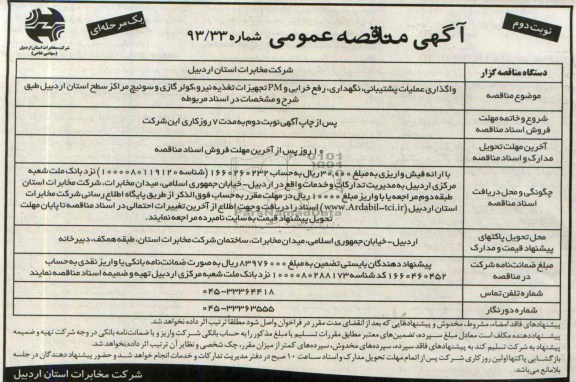 نوبت دوم
آگهی مناقصه عمومی شماره ۹۳/۳۳
یک مرحله ای
شرکت مخابرات استان اردبیل
(سهامی خاص)
دستگاه مناقصه گزار
شرکت مخابرات استان اردبیل
موضوع مناقصه
واگذاری عملیات پشتیبانی، نگهداری، رفع خرابی و PM تجهیزات تغذیه نیرو، کولر گازی و سوئیچ مراکز سطح استان اردبیل طبق
شرح و مشخصات در اسناد مربوطه
شروع و خاتمه مهلت
فروش اسناد مناقصه
پس از چاپ آگهی نوبت دوم به مدت ۷ روز کاری این شرکت
آخرین مهلت تحویل
مدارک و اسناد مناقصه
۱۰ روز پس از آخرین مهلت فروش اسناد مناقصه
چگونگی و محل دریافت
اسناد مناقصه
با ارائه فیش واریزی به مبلغ ۳۰,۰۰۰ ریال به حساب ۱۶۶۰۲۶۰۲۳۲ (شناسه ۱۰۰۰۰۸۰۱۱۹۱۲۰) نزد بانک ملت شعبه
مرکزی اردبیل به مدیریت تدارکات و خدمات واقع در اردبیل - خیابان جمهوری اسلامی، میدان مخابرات، شرکت مخابرات استان
طبقه دوم مراجعه یا با واریز مبلغ ۱۰۰۰۰ ریال در مهلت مقرر به حساب فوق الذکر از طریق پایگاه اطلاع رسانی شرکت مخابرات
استان اردبیل (www.Ardabil-tci.ir) اسناد را دریافت و جهت اطلاع از آخرین تغییرات احتمالی در اسناد مناقصه تا پایان مهلت
تحویل پیشنهاد قیمت به سایت نامبرده مراجعه نمایند.
محل تحویل پاکتهای
پیشنهاد قیمت و مدارک
اردبیل - خیابان جمهوری اسلامی، میدان مخابرات، ساختمان شرکت مخابرات استان، طبقه همکف، دبیرخانه
مبلغ ضمانت نامه شرکت
در مناقصه
پیشنهاد دهندگان بایستی تضمین به مبلغ ۸۳۹۷۶۰۰۰ ریال به صورت ضمانت نامه بانکی یا واریز نقدی به حساب
۱۶۶۰۴۶۰۴۵۲ کد شناسه ۱۰۰۰۰۸۰۲۸۸۱۷۳ نزد بانک ملت شعبه مرکزی اردبیل تهیه و ضمیمه اسناد مناقصه نمایند
شماره تلفن تماس
۰۴۵-۳۳۳۶۴۴۱۸
شماره دورنگار
۰۴۵-۳۳۳۶۳۵۵۵
پیشنهادهای فاقد امضاء، مشروط، مخدوش و پیشنهادهایی که بعد از انقضای مدت مقرر در فراخوان واصل شود مطلقا ترتیب اثر داده نخواهد شد.
پیشنهاد دهنده مکلف است معادل مبلغ سپرده، تضمین های معتبر مطابق مقررات تسلیم یا مبلغ مذکور را به حساب بانکی شرکت واریز و یا ضمانت نامه بانکی در وجه شرکت تهیه و ضمیمه
پیشنهاد به شرکت تسلیم کند به پیشنهادهای فاقد سپرده، سپرده های مخدوش، سپرده های کمتر از میزان مقرر، چک شخصی و نظایر آن ترتیب اثر داده نخواهد شد.
بازگشایی پاکتها اولین روز کاری شرکت پس از اتمام مهلت تحویل مدارک و اسناد ساعت ۱۰ صبح در دفتر مدیریت تدارکات و خدمات انجام خواهد شد و حضور پیشنهاد دهندگان در جلسه
بلامانع می باشد.
شرکت مخابرات استان اردبیل